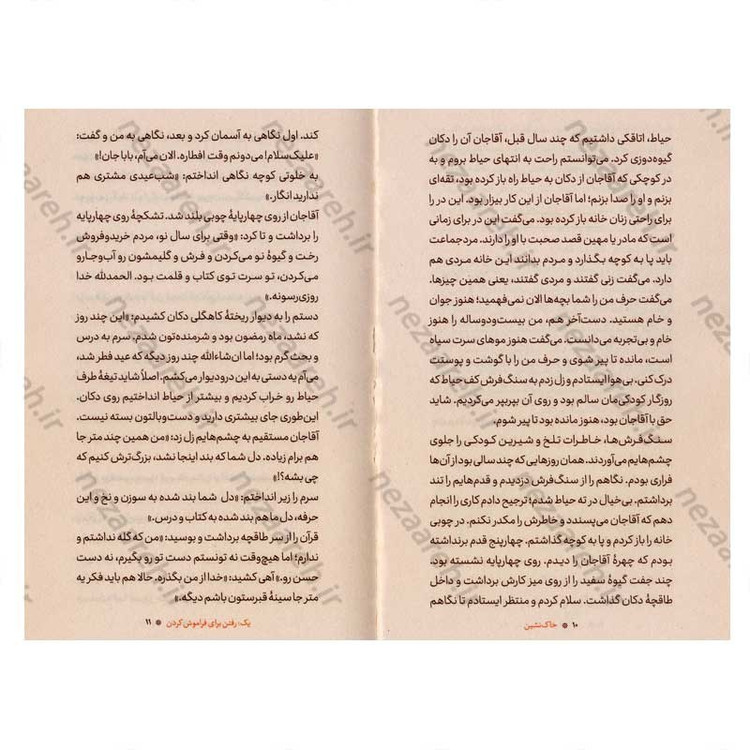 حیاط، اتاقکی داشتیم که چند سال قبل، آقاجان آن را دکان
گیوه‌دوزی کرد. می‌توانستم راحت به انتهای حیاط بروم و به
در کوچکی که آقاجان از دکان به حیاط راه باز کرده بود، تقه‌ای
بزنم و او را صدا بزنم؛ اما آقاجان از این کار بیزار بود. این در را
برای راحتی زنان خانه باز کرده بود. می‌گفت این در برای زمانی
است که مادر یا مهین قصد صحبت با او را دارند. مرد‌جماعت
باید پا به کوچه بگذارد و مردم بدانند این خانه مردی هم
دارد. می‌گفت زنی گفتند و مردی گفتند، یعنی همین چیزها.
می‌گفت حرف من را شما بچه‌ها الان نمی‌فهمید؛ هنوز جوان
و خام هستید. دست‌آخر هم، من بیست‌ودوساله را هنوز
خام و بی‌تجربه می‌دانست. می‌گفت هنوز موهای سرت سیاه
است، مانده تا پیر شوی و حرف من را با گوشت و پوستت
درک کنی. بی‌هوا ایستادم و زل زدم به سنگ‌فرش کف حیاط که
روزگار کودکی‌مان سالم بود و روی آن بپربپر می‌کردیم. شاید
حق با آقاجان بود، هنوز مانده بود تا پیر شوم.
سنگ‌فرش‌ها، خاطرات تلخ و شیرین کودکی را جلوی
چشم‌هایم می‌آوردند. همان روزهایی که چند سالی بود از آن‌ها
فراری بودم. نگاهم را از سنگ‌فرش دزدیدم و قدم‌هایم را تند
برداشتم. بی‌خیال در ته حیاط شدم؛ ترجیح دادم کاری را انجام
دهم که آقاجان می‌پسندد و خاطرش را مکدر نکنم. در چوبی
خانه را باز کردم و پا به کوچه گذاشتم. چهارپنج قدم برنداشته
بودم که چهرهٔ آقاجان را دیدم. روی چهارپایه نشسته بود.
چند جفت گیوهٔ سفید را از روی میز کارش برداشت و داخل
طاقچهٔ دکان گذاشت. سلام کردم و منتظر ایستادم تا نگاهم
۱۰ ● خاک‌نشین
کند. اول نگاهی به آسمان کرد و بعد، نگاهی به من و گفت:
«علیک‌سلام! می‌دونم وقت افطاره. الان می‌آم، باباجان!»
به خلوتی کوچه نگاهی انداختم: «شب‌عیدی مشتری هم
ندارید انگار.»
آقاجان از روی چهارپایهٔ چوبی بلند شد. تشکچهٔ روی چهارپایه
را برداشت و تا کرد: «وقتی برای سال نو، مردم خریدوفروش
رخت و گیوهٔ نو می‌کردن و فرش و گلیمشون رو آب‌وجارو
می‌کردن، تو سرت توی کتاب و قلمت بود. الحمدلله خدا
روزی‌رسونه.»
دستم را به دیوار ریختهٔ کاهگلی دکان کشیدم: «این چند روز
که نشد، ماه رمضون بود و شرمنده‌تون شدم. سرم به درس
و بحث گرم بود؛ اما ان‌شاءالله چند روز دیگه که عید فطر شد،
می‌آم یه دستی به این درودیوار می‌کشم. اصلاً شاید تیغهٔ طرف
حیاط رو خراب کردیم و بیشتر از حیاط انداختیم روی دکان.
این‌طوری جای بیشتری دارید و دست‌وبالتون بسته نیست.
آقاجان مستقیم به چشم‌هایم زل زد: «من همین چند متر جا
هم برام زیاده. دل شما که بند اینجا نشد، بزرگ‌ترش کنیم که
چی بشه؟!»
سرم را زیر انداختم: «دل شما بند شده به سوزن و نخ و این
حرفه، دل ما هم بند شده به کتاب و درس.»
قرآن را از سر طاقچه برداشت و بوسید: «من که گله نداشتم و
ندارم؛ اما هیچ‌وقت نه تونستم دست تو رو بگیرم، نه دست
حسن رو.» آهی کشید: «خدا از من بگذره. حالا هم باید فکر یه
متر جا سینهٔ قبرستون باشم دیگه.»
یک: رفتن برای فراموش کردن ● ۱۱
nezaareh.ir
nezaareh.ir
nezaareh.ir
nezaareh.ir
nezaareh.ir
nezaareh.ir